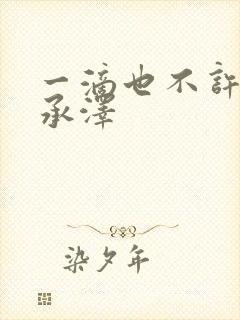 一滴也不许
承泽
染夕年